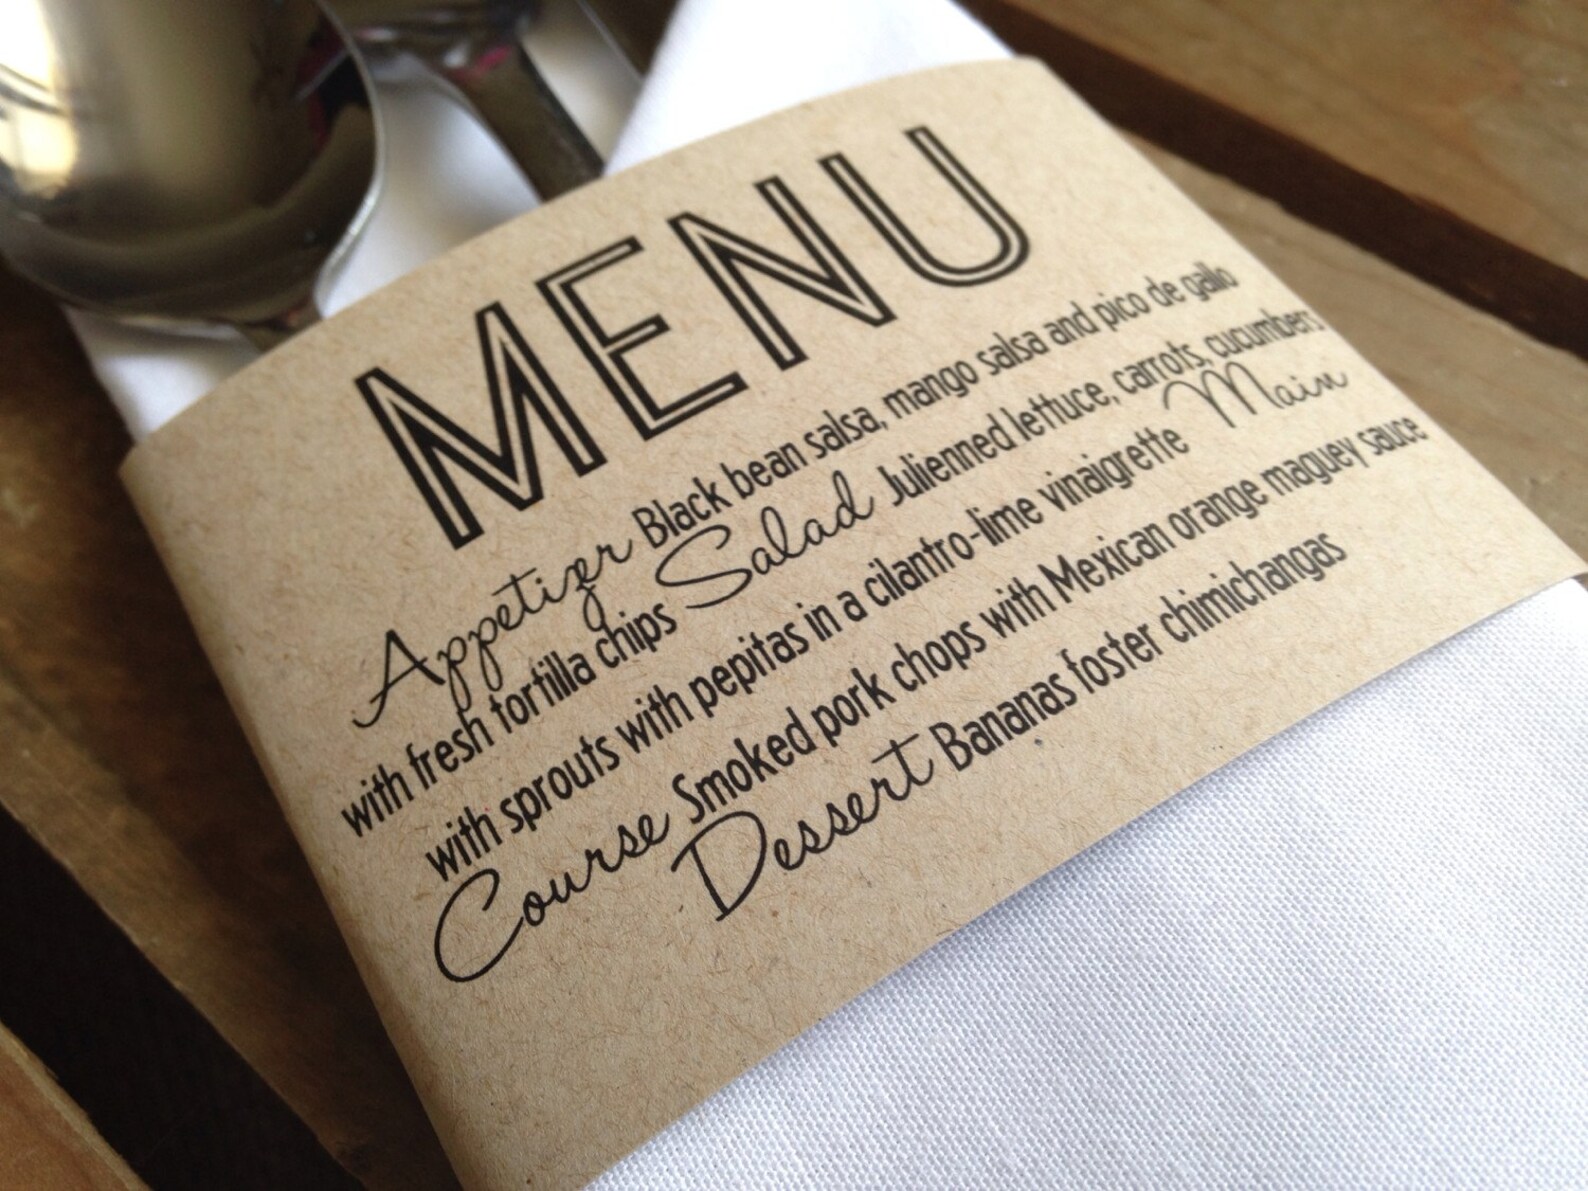 MENU
Appetizer Black bean salsa, mango salsa and pico de gallo
with fresh tortilla chips Salad Julienned lettuce, carrots, cucumbers
with sprouts with pepitas in a cilantro-lime vinaigrette Main
Course Smoked pork chops with Mexican orange maguey sauce
Dessert Bananas foster chimichangas